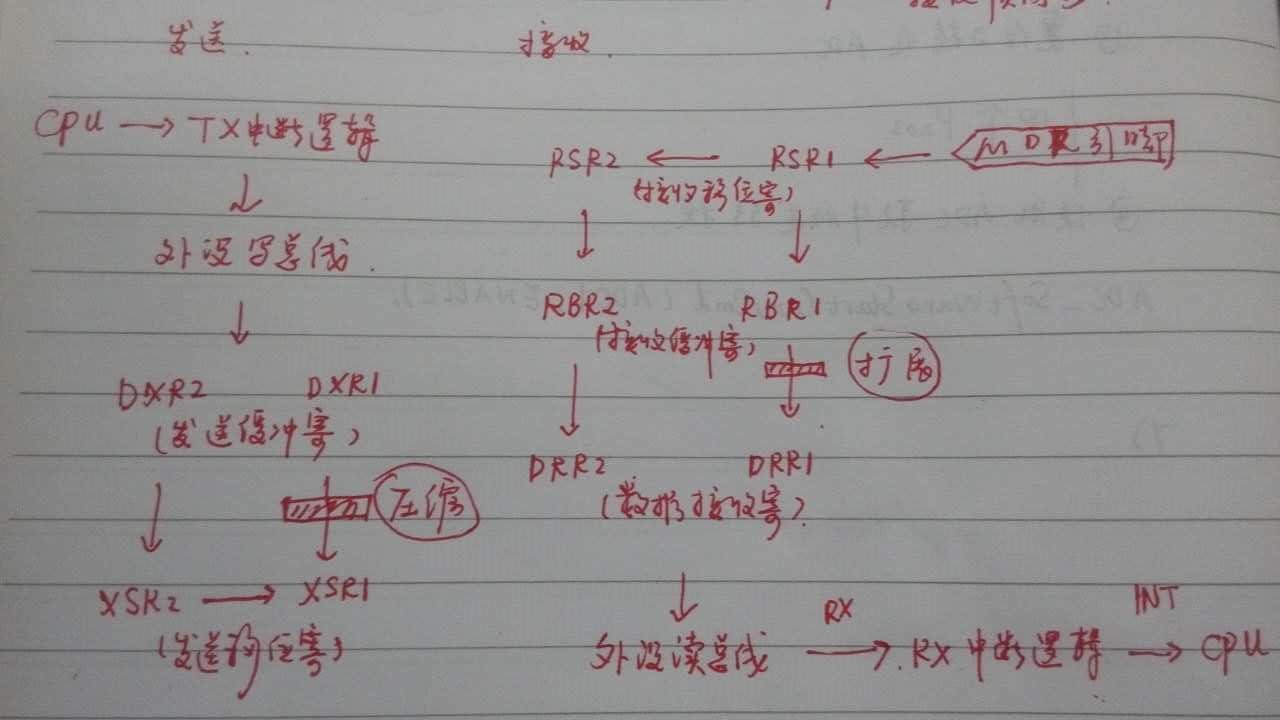 发送.
接收.
CPU → TX中断逻辑
RSR2 ← RSR1 ← MDR引脚
(接收移位寄)
外设写总线.
RBR2 RBR1
(接收缓冲寄)
扩展
DXR2 DXR1
(发送缓冲寄)
DRR2 DRR1
(数据接收寄)
压缩
XSR2 → XSR1
(发送移位寄)
外设读总线 → RX中断逻辑 → CPU
RX
INT